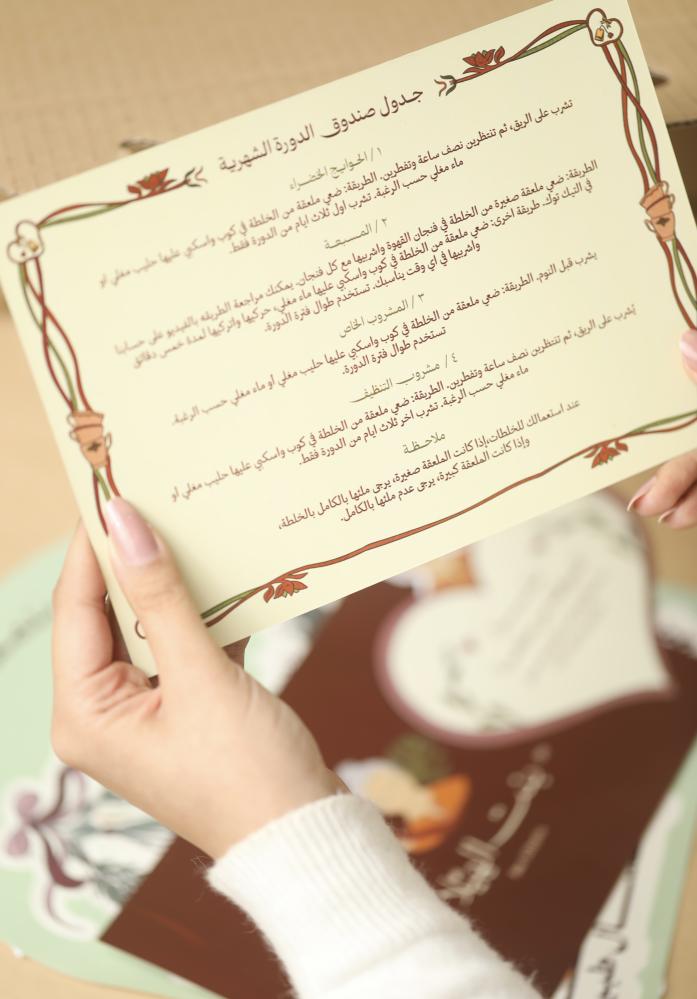 جدول صندوق الدورة الشهرية
١/ الحوايج الخضراء
تشرب على الريق، ثم تنتظرين نصف ساعة وتفطرين. الطريقة: ضعي ملعقة من الخلطة في كوب واسكبي عليها حليب مغلي او
ماء مغلي حسب الرغبة. تشرب اول ثلاث ايام من الدورة فقط.
٢/ المسبعة
الطريقة: ضعي ملعقة صغيرة من الخلطة في فنجان القهوة واشربيها مع كل فنجان. يمكنك مراجعة الطريقة بالفيديو على حسابنا
في التيك توك. طريقة اخرى: ضعي ملعقة من الخلطة في كوب واسكبي عليها ماء مغلي، حركيها واتركيها لمدة خمس دقائق
واشربيها في اي وقت يناسبك. تستخدم طوال فترة الدورة.
٣/ المشروب الخاص
يشرب قبل النوم. الطريقة: ضعي ملعقة من الخلطة في كوب واسكبي عليها حليب مغلي او ماء مغلي حسب الرغبة.
تستخدم طوال فترة الدورة.
٤/ مشروب التنظيف
يُشرب على الريق، ثم تنتظرين نصف ساعة وتفطرين. الطريقة: ضعي ملعقة من الخلطة في كوب واسكبي عليها حليب مغلي او
ماء مغلي حسب الرغبة. تشرب اخر ثلاث ايام من الدورة فقط.
ملاحظة
عند استعمالك للخلطات،إذا كانت الملعقة صغيرة، يرجى ملئها بالكامل بالخلطة،
وإذا كانت الملعقة كبيرة، يرجى عدم ملئها بالكامل.